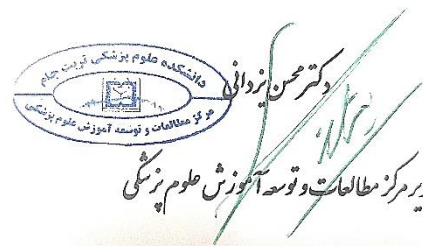 دانشکده علوم پزشکی تربت جام
مرکز مطالعات و توسعه آموزش علوم پزشکی
دکتر محسن یزدانی
یر مرکز مطالعات و توسعه آموزش علوم پزشکی